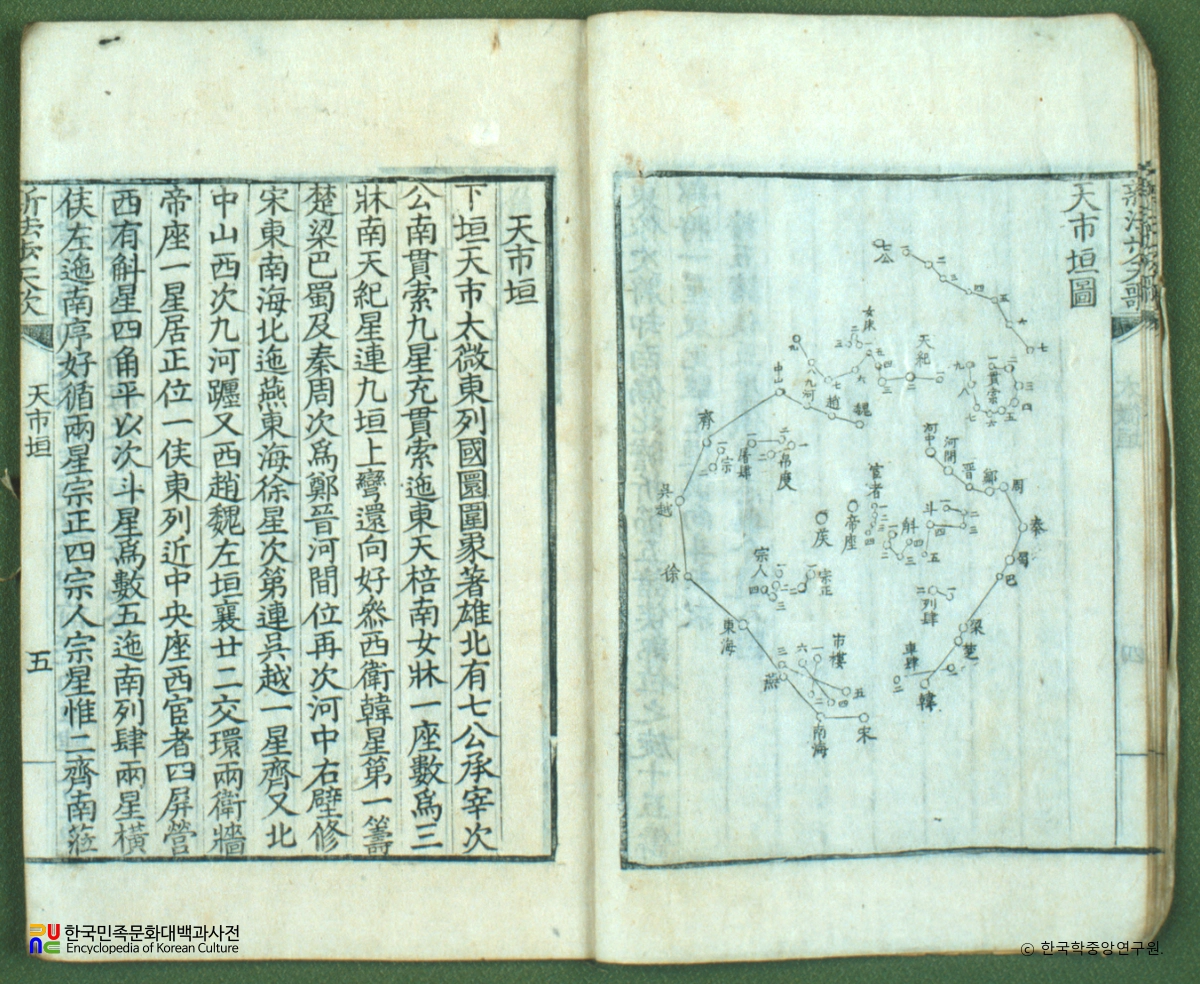 新法步天歌
天市垣圖
七公
二
三
四
五
六
七
女牀
天紀
貫索
九河
中山
趙
魏
齊
宗
屠肆
帛度
河中
河間
晉
鄭
周
秦
蜀
巴
梁
楚
韓
宦者
帝座
侯
斛
斗
列肆
車肆
吳越
徐
宗人
宗正
東海
市樓
燕
南海
宋
天市垣
下垣天市太微東列國圜圍象著雄北有七公承宰次
公南貫索九星充貫索迤東天棓南女牀一座數爲三
牀南天紀星連九垣上彎還向好叅西衛韓星第一籌
楚梁巴蜀及秦周次爲鄭晉河間位再次河中右壁修
宋東南海北迤燕東海徐星次第連吳越一星齊又北
中山西次九河躔又西趙魏左垣襄廿二交環兩衛牆
帝座一星居正位一侯東列近中央座西宦者四屏營
西有斛星四角平以次斗星爲數五迤南列肆兩星橫
侯左迤南序好循兩星宗正四宗人宗星惟二齊南蒞
新法步天歌
天市垣
五
한국민족문화대백과사전
Encyclopedia of Korean Culture
© 한국학중앙연구원.